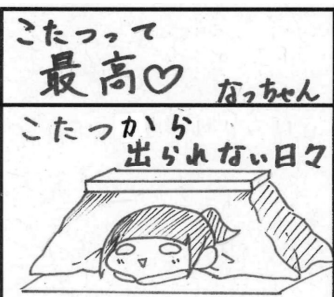 こたつって
最高♡
なっちゃん
こたつから
出られない日々